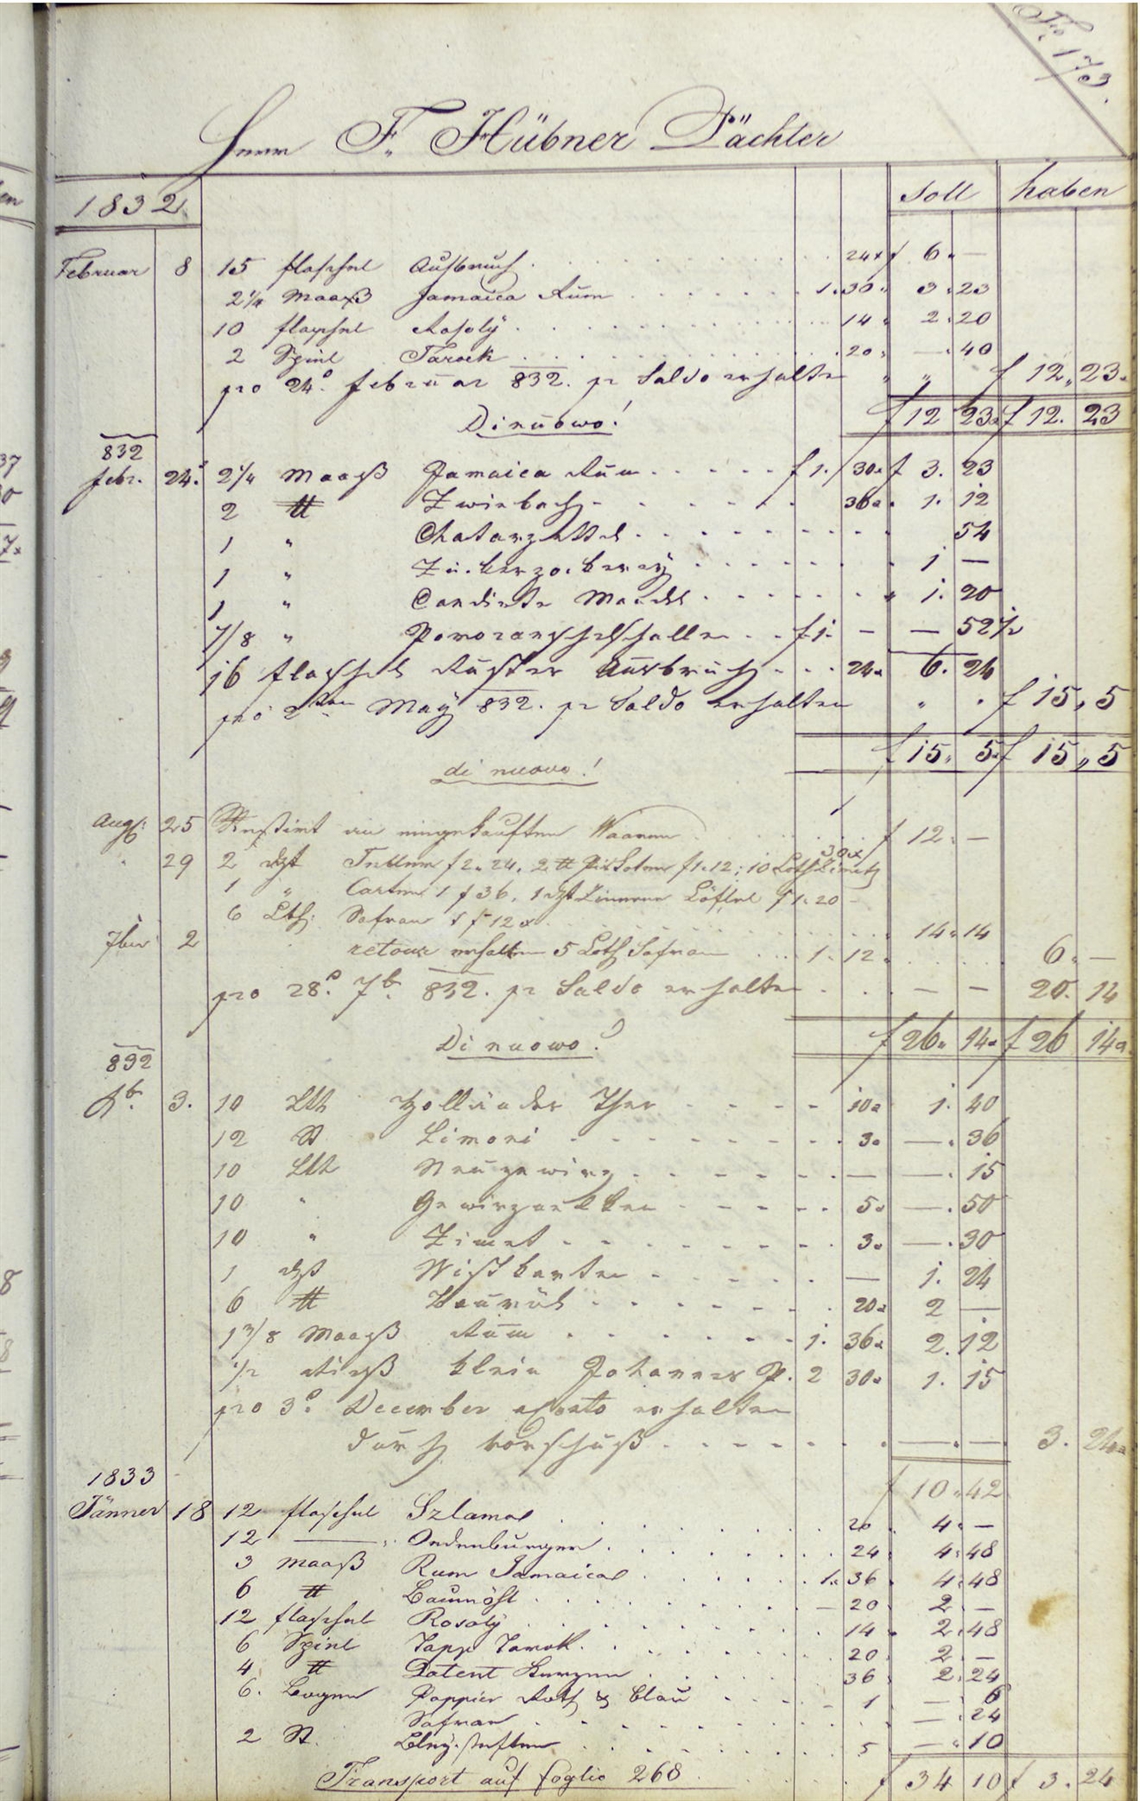 Fo. 173.
Herr F. Hübner Pächter
1832 Soll haben
Februar 8 15 flaschel Ausbruch 24x f 6. —
2 1/4 Maaß Jamaica Rum 1. 30. 3. 23
10 flaschel Rosoly 14. 2. 20
2 Spiel Tarock 20. . 40
pro 24o. februar 832. pr Saldo erhalten „ „ f 12. 23.
f 12 23. f 12. 23
Di nuowo!
832
febr. 24. 2 1/4 Maaß Jamaica Rum f 1. 30. f 3. 23
2 ℔ Zwiebach 36. 1. 12
1 „ 54
1 „ 1 —
1 „ Candirte Mandl 1. 20
7/8 „ Pomoranschelschallen f 1. — — 52 1/2
16 flaschel Ruster Ausbruch 24. 6. 24
pro 2ten May 832. pr Saldo erhalten „ . f 15. 5
f 15. 5. f 15. 5
di nuovo!
Augs: 25 an eingekauften Waaren f 12. —
30x
29 2 Teller f 2. 24. 2 ℔ f 1. 12. 10 Loth Zimet
1 „ Carten 1 f 36. 1 Löffel f 1. 20
6 Lth: Safran f 12x 14. 14
7ber 2 retour erhalten 5 Loth Safran 1. 12. 6. —
pro 28o. 7b. 832. pr Saldo erhalten — — 20. 14
f 26. 14. f 26 14.
Di nuowo!
832
3. 10 Lth Holländer Thee 10. 1. 40
12 St Limoni 3. —. 36
10 Lth Neugewirz — —. 15
10 „ Gewirznelken 5. —. 50
10 „ Zimet 3. —. 30
1 Wistkarten — 1. 24
6 ℔ Baumöhl 20. 2 —
1 3/8 Maaß Rum 1. 36. 2. 12
1/2 Rieß klein Johannes P. 2 30. 1. 15
pro 3o. December erhalten
durch Vorschuß —. — 3. 24.
f 10. 42
1833
Jänner 18 12 flaschel Szlamos 20 4. —
12 — „ Oedenburger 24 4. 48
3 Maaß Rum Jamaical 1. 36 4. 48
6 ℔ Baumöhl — 20 2. —
12 flaschel Rosoly 14 2. 48
6 Spiel Tapp Tarok 20 2 —
4 ℔ Patent Kerzen 36 2. 24
6. Bogen Pappier Roth & blau 1 — 6
Safran — 24
2 St. Bleystiften 5 —. 10
Transport auf foglio 268 f 34 10 f 3. 24